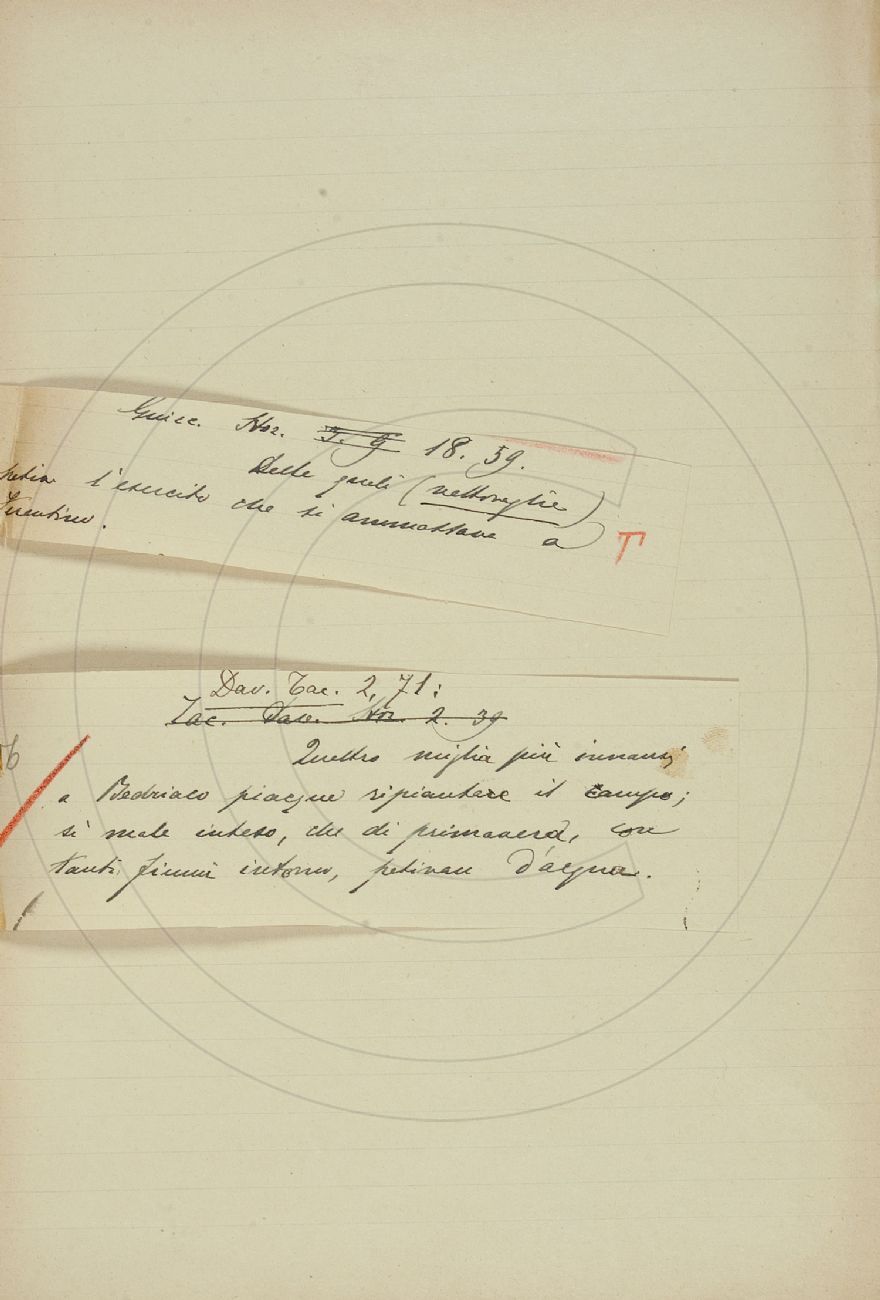 Guicc. Stor. 3. 9 18. 59.
Delle quali (vettovaglie)
petiva l'esercito che si ammassava a T
Trentino.
Dav. Tac. 2, 71:
Tac. Dav. Stor. 2. 39
Quattro miglia più innanzi
a Bedriaco piacque ripiantare il campo;
sì male inteso, che di primavera, con
tanti fiumi intorno, petivan d'acqua.